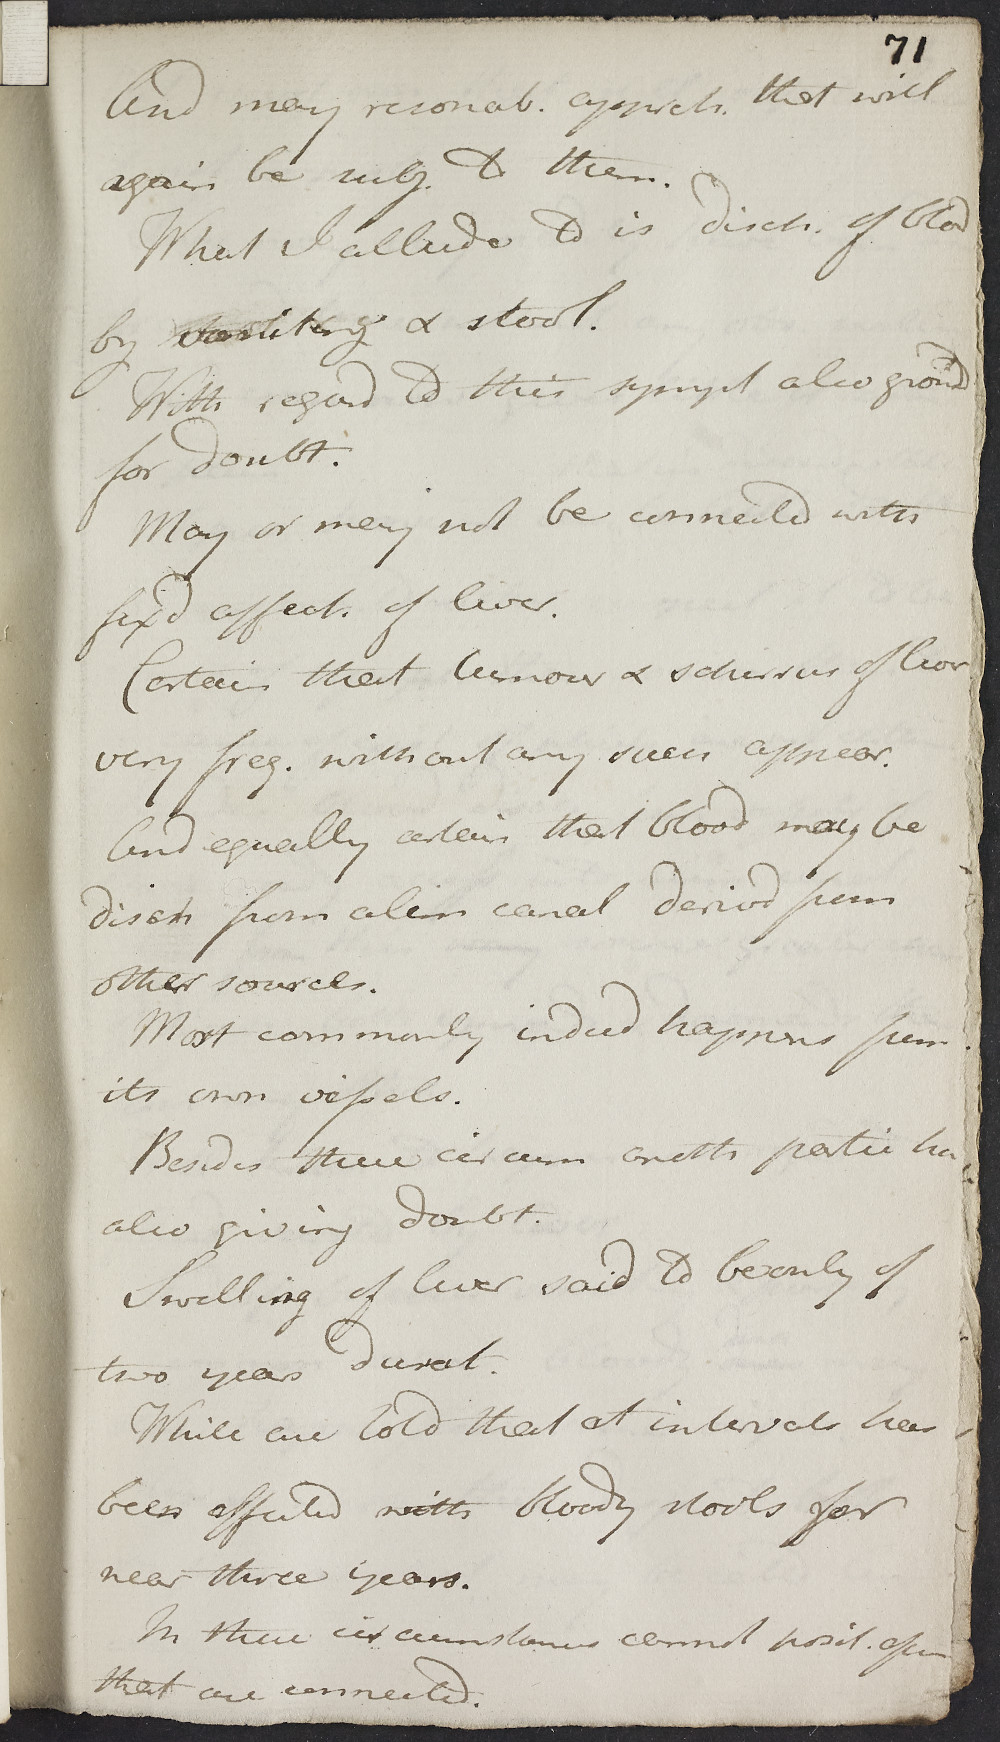 71
And may resonab. appreh. that will
again be subj. to them.
What I allude to is disch. of blood
by vomiting & stool.
With regard to this sympt also ground
for doubt.
May or may not be connected with
fix'd affect. of liver.
Certain that tumour & schirrus of liver
very freq. without any such appear.
And equally certain that blood may be
disch from alim canal derivd from
other sources.
Most commonly indeed happens from
its own vessels.
Besides these circum anoth partic
also giving doubt.
Swelling of liver said to be only of
two years durat.
While are told that at intervals has
been affected with bloody stools for
near three years.
In these circumstances cannot posit.
that are connected.